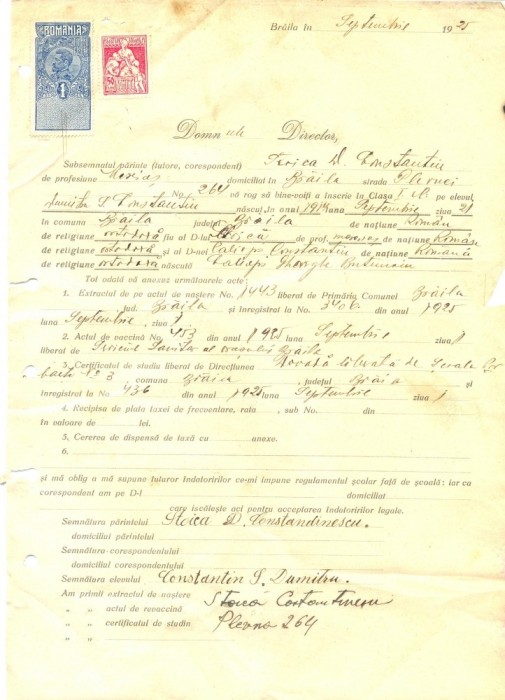 Brăila în Septembrie 1925
ROMÂNIA
1
Domnule Director,
Subsemnatul părinte (tutore, corespondent) Stoica D. Constantin
de profesiune domiciliat în Brăila strada Plevnei
No. 264 vă rog să bine-voiți a înscrie în Clasa I pe elevul
Dumitru S. Constantin născut în anul Septembrie ziua 21
în comuna Brăila județul Brăila de națiune Român
de religiune ortodoxă fiu al D-lui Stoica de prof. de națiune Român
de religiune ortodoxă și al D-nei Constantin de națiune Română
de religiune ortodoxă născută Gheorghe
Tot odată vă anexez următoarele acte:
1. Extractul de pe actul de naștere No. 1443 liberat de Primăria Comunei Brăila
jud. Brăila și înregistrat la No. din anul 1925
luna Septembrie ziua 1
2. Actul de vaccină No. 453 din anul 1925 luna Septembrie ziua 1
liberat de Serviciul Sanitar al orașului Brăila
3. Certificatul de studii liberat de Direcțiunea Școala
No 3, comuna Brăila, județul Brăila și
înregistrat la No. 436 din anul 1925 luna Septembrie ziua 1
4. Recipisa de plata taxei de frecventare, rata, sub No. din
în valoare de lei.
5. Cererea de dispensă de taxă cu anexe.
6.
și mă oblig a mă supune tuturor îndatoririlor ce-mi impune regulamentul școlar față de școală; iar ca
corespondent am pe D-l domiciliat
care iscălește aci pentru acceptarea îndatoririlor legale.
Semnătura părintelui Stoica D. Constandinescu.
domiciliul părintelui
Semnătura corespondentului
domiciliul corespondentului
Semnătura elevului Constantin S. Dumitru.
Am primit extractul de naștere Stoica Costantinescu
„ „ actul de revaccină Plevna 264
„ „ certificatul de studii
„ „